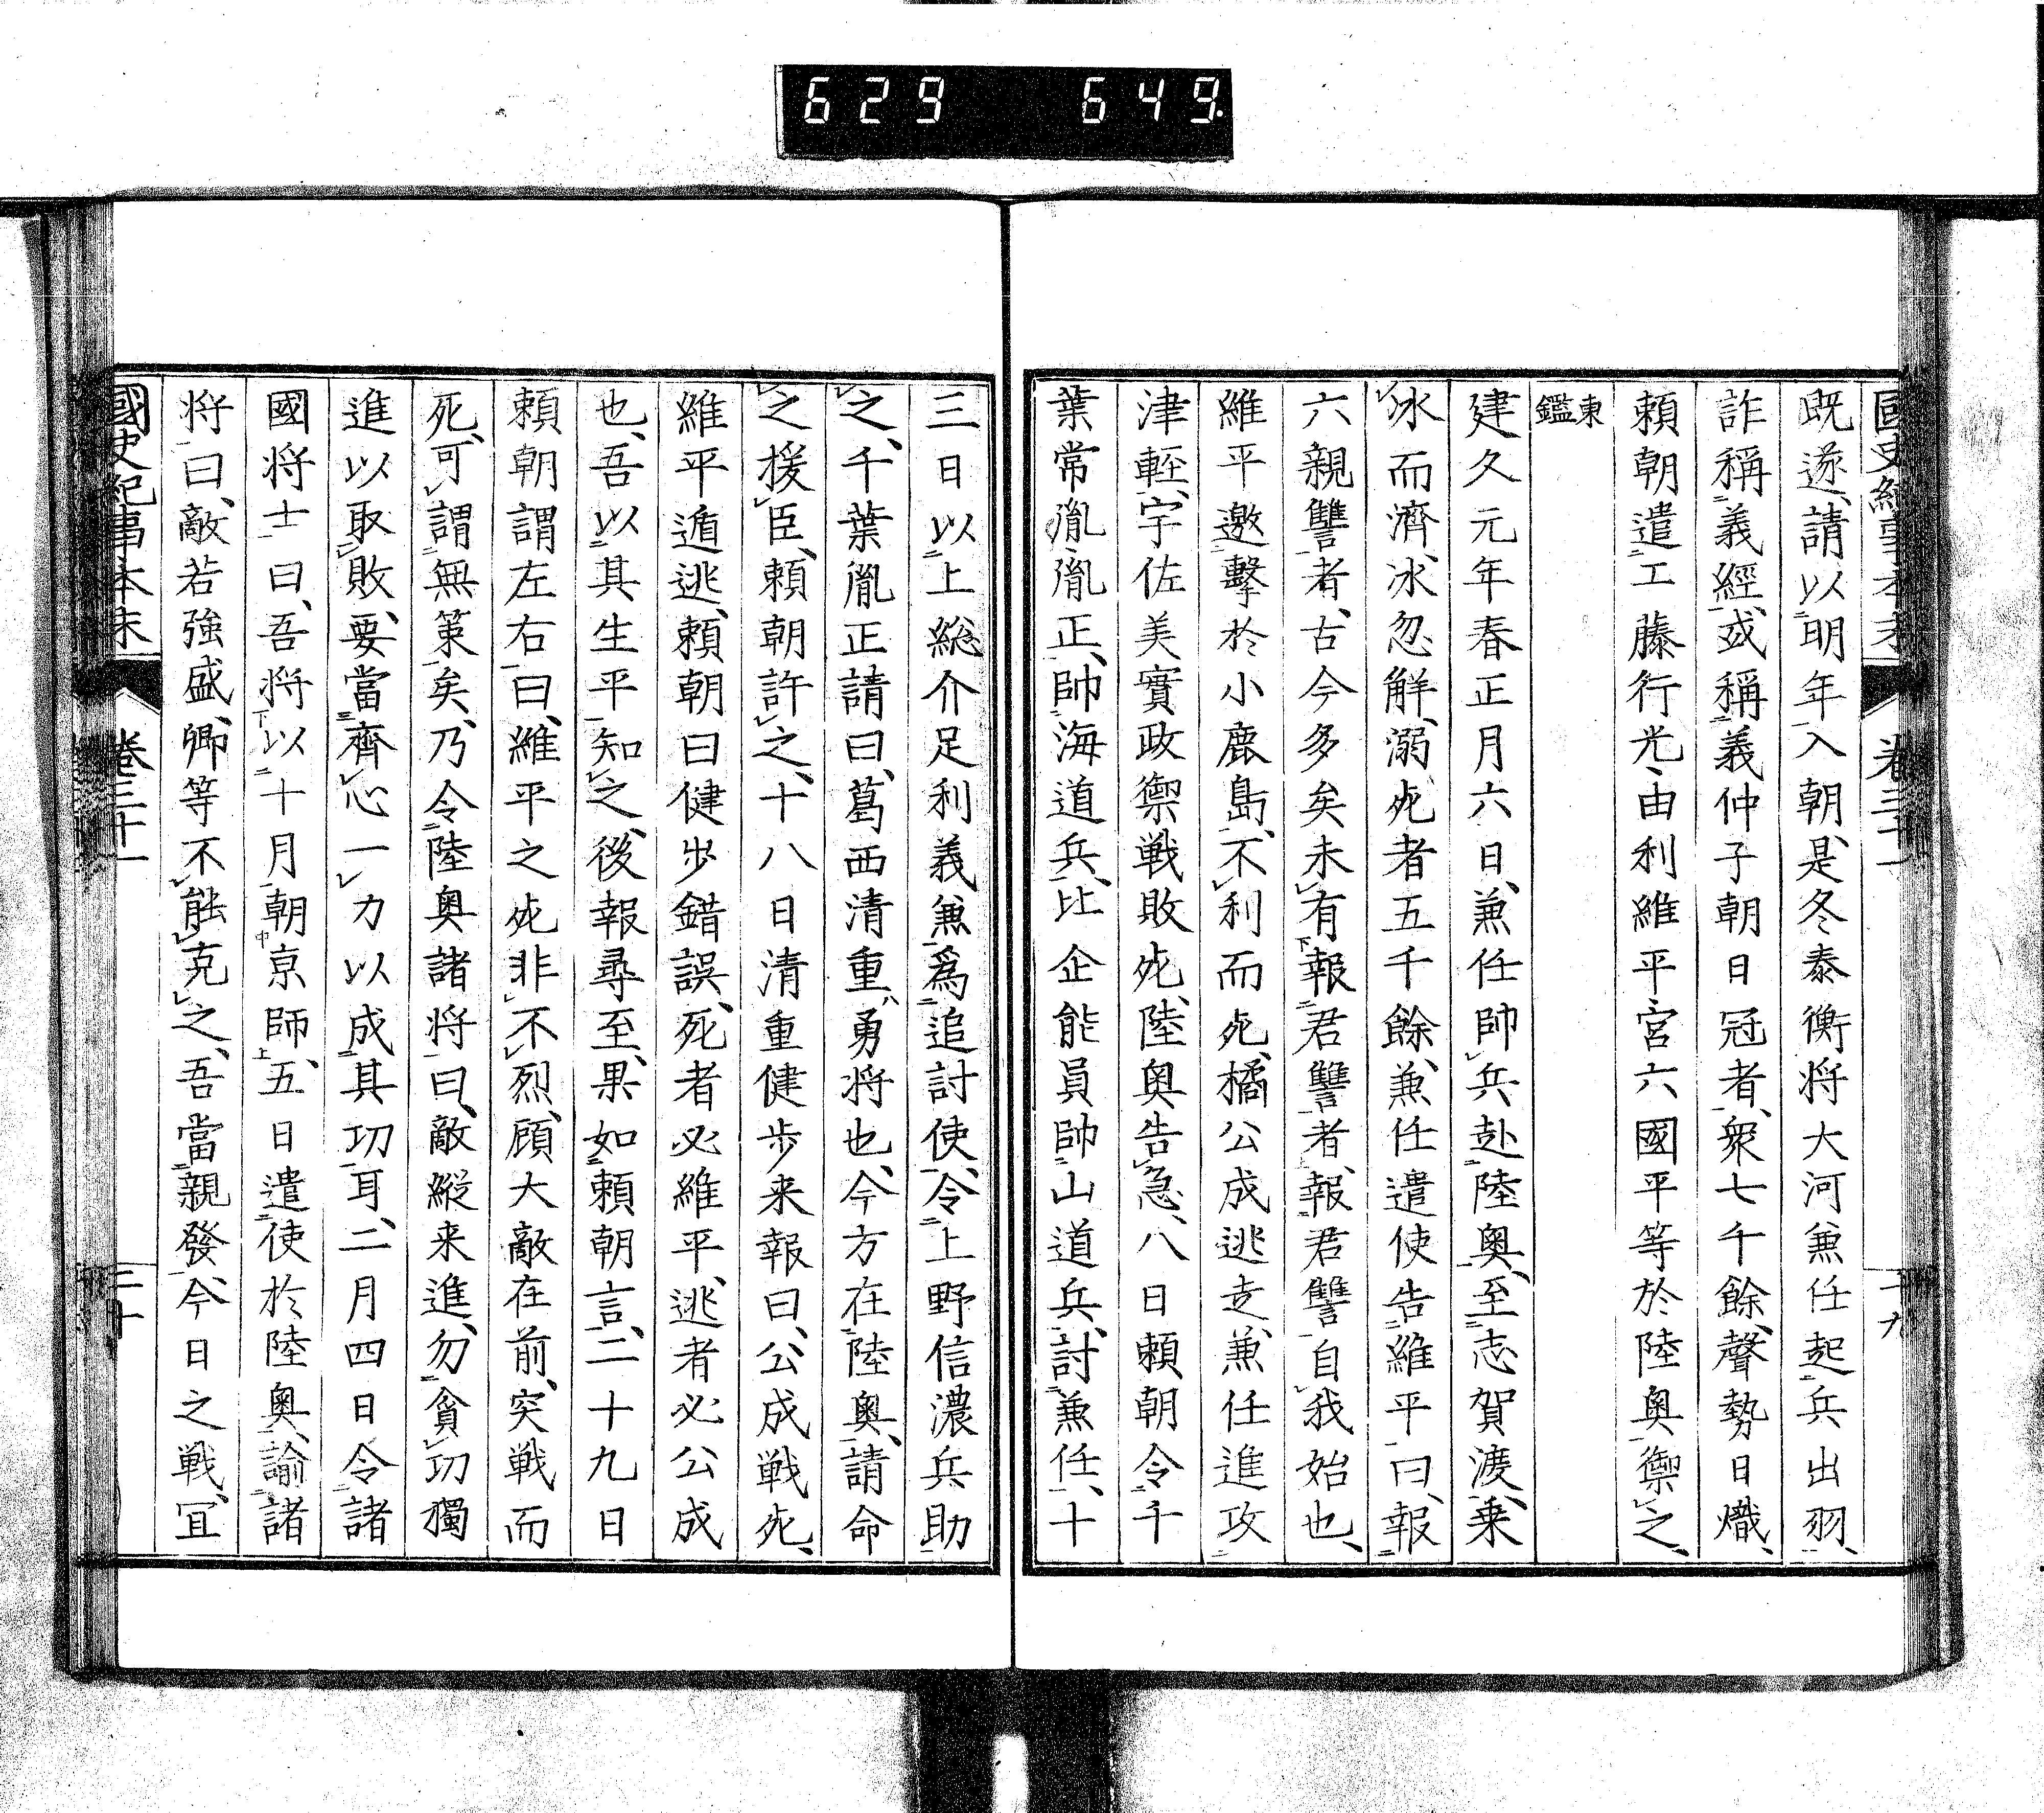 629 649.
國史紀事本末 卷三十一 二十九
既遂、請以明年入朝、是冬泰衡将大河兼任起兵出羽、
詐稱義經、或稱義仲子朝日冠者、衆七千餘、聲勢日熾、
頼朝遣工藤行光、由利維平宮六國平等於陸奥禦之、
東鑑
建久元年春正月六日、兼任帥兵赴陸奥、至志賀渡、乗
氷而濟、氷忽解、溺死者五千餘、兼任遣使告維平曰、報
六親讐者、古今多矣未有報君讐者、報君讐自我始也、
維平邀擊於小鹿島、不利而死、橘公成逃走、兼任進攻
津輕、宇佐美實政禦戦敗死、陸奥告急、八日頼朝令千
葉常胤、胤正、帥海道兵、比企能員帥山道兵、討兼任、十
三日以上総介足利義兼爲追討使、令上野信濃兵助
之、千葉胤正請曰、葛西清重、勇将也、今方在陸奥、請命
之援臣、頼朝許之、十八日清重健歩来報曰、公成戦死、
維平遁逃、頼朝曰健歩錯誤、死者必維平、逃者必公成
也、吾以其生平知之、後報尋至、果如頼朝言、二十九日
頼朝謂左右曰、維平之死非不烈、顧大敵在前、突戦而
死、可謂無策矣、乃令陸奥諸将曰、敵縦来進、勿貪功獨
進以取敗、要當齊心一力以成其功耳、二月四日令諸
國将士曰、吾将以十月朝亰師、五日遣使於陸奥、諭諸
将曰、敵若強盛、卿等不能克之、吾當親發、今日之戦、宜
國史紀事本末 卷三十一 三十